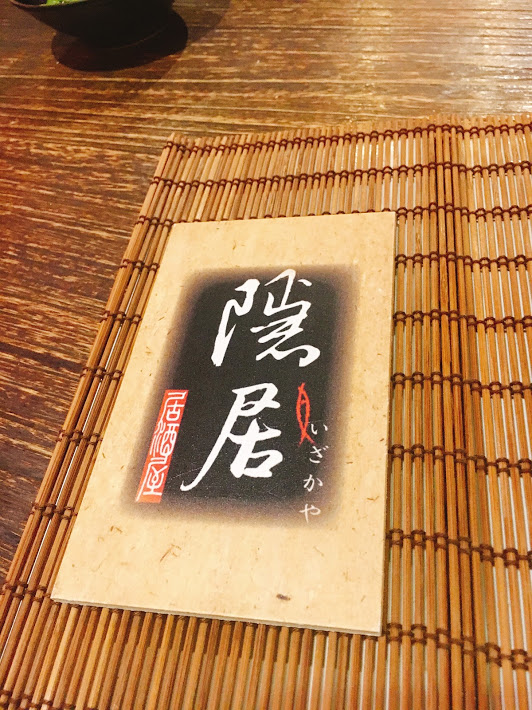 隱居
いざかや
居酒屋